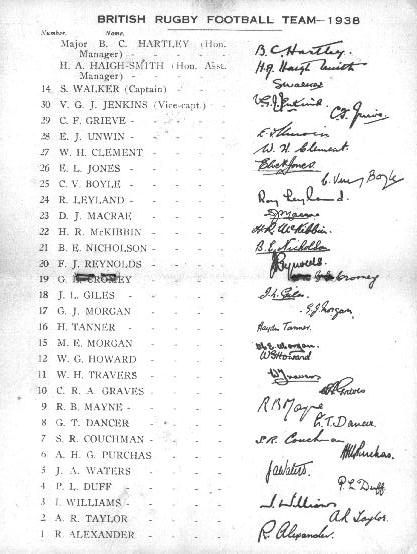 BRITISH RUGBY FOOTBALL TEAM—1938
Number. Name.
Major B. C. HARTLEY (Hon. Manager) - - - B. C. Hartley.
H. A. HAIGH-SMITH (Hon. Asst. Manager) - - - H. A. Haigh Smith
14 S. WALKER (Captain) - - - S Walker
30 V. G. J. JENKINS (Vice-capt.) - - V. G. J. Jenkins
29 C. F. GRIEVE - - - - C. F. Grieve
28 E. J. UNWIN - - - - E J Unwin
27 W. H. CLEMENT - - - - W. H. Clement
26 E. L. JONES - - - - Jones
25 C. V. BOYLE - - - - C. Very Boyle
24 R. LEYLAND - - - - Roy Leyland.
23 D. J. MACRAE - - - - Macrae
22 H. R. McKIBBIN - - - - H. R. McKibbin.
21 B. E. NICHOLSON - - - - B. E. Nicholson
20 F. J. REYNOLDS - - - - Reynolds
19 G. CROMEY - - - - Cromey
18 J. L. GILES - - - - J. L. Giles.
17 G. J. MORGAN - - - - G J Morgan.
16 H. TANNER - - - - Haydn Tanner.
15 M. E. MORGAN - - - - M. E. Morgan.
12 W. G. HOWARD - - - - W G Howard
11 W. H. TRAVERS - - - - W Travers
10 C. R. A. GRAVES - - - - Graves
9 R. B. MAYNE - - - - R B Mayne
8 G. T. DANCER - - - - G. T. Dancer.
7 S. R. COUCHMAN - - - - S. R. Couchman
6 A. H. G. PURCHAS - - - - Purchas.
5 J. A. WATERS - - - - J A Waters.
4 P. L. DUFF - - - - P. L Duff
3 I. WILLIAMS - - - - I. Williams
2 A. R. TAYLOR - - - - A R Taylor.
1 R. ALEXANDER - - - - R. Alexander.